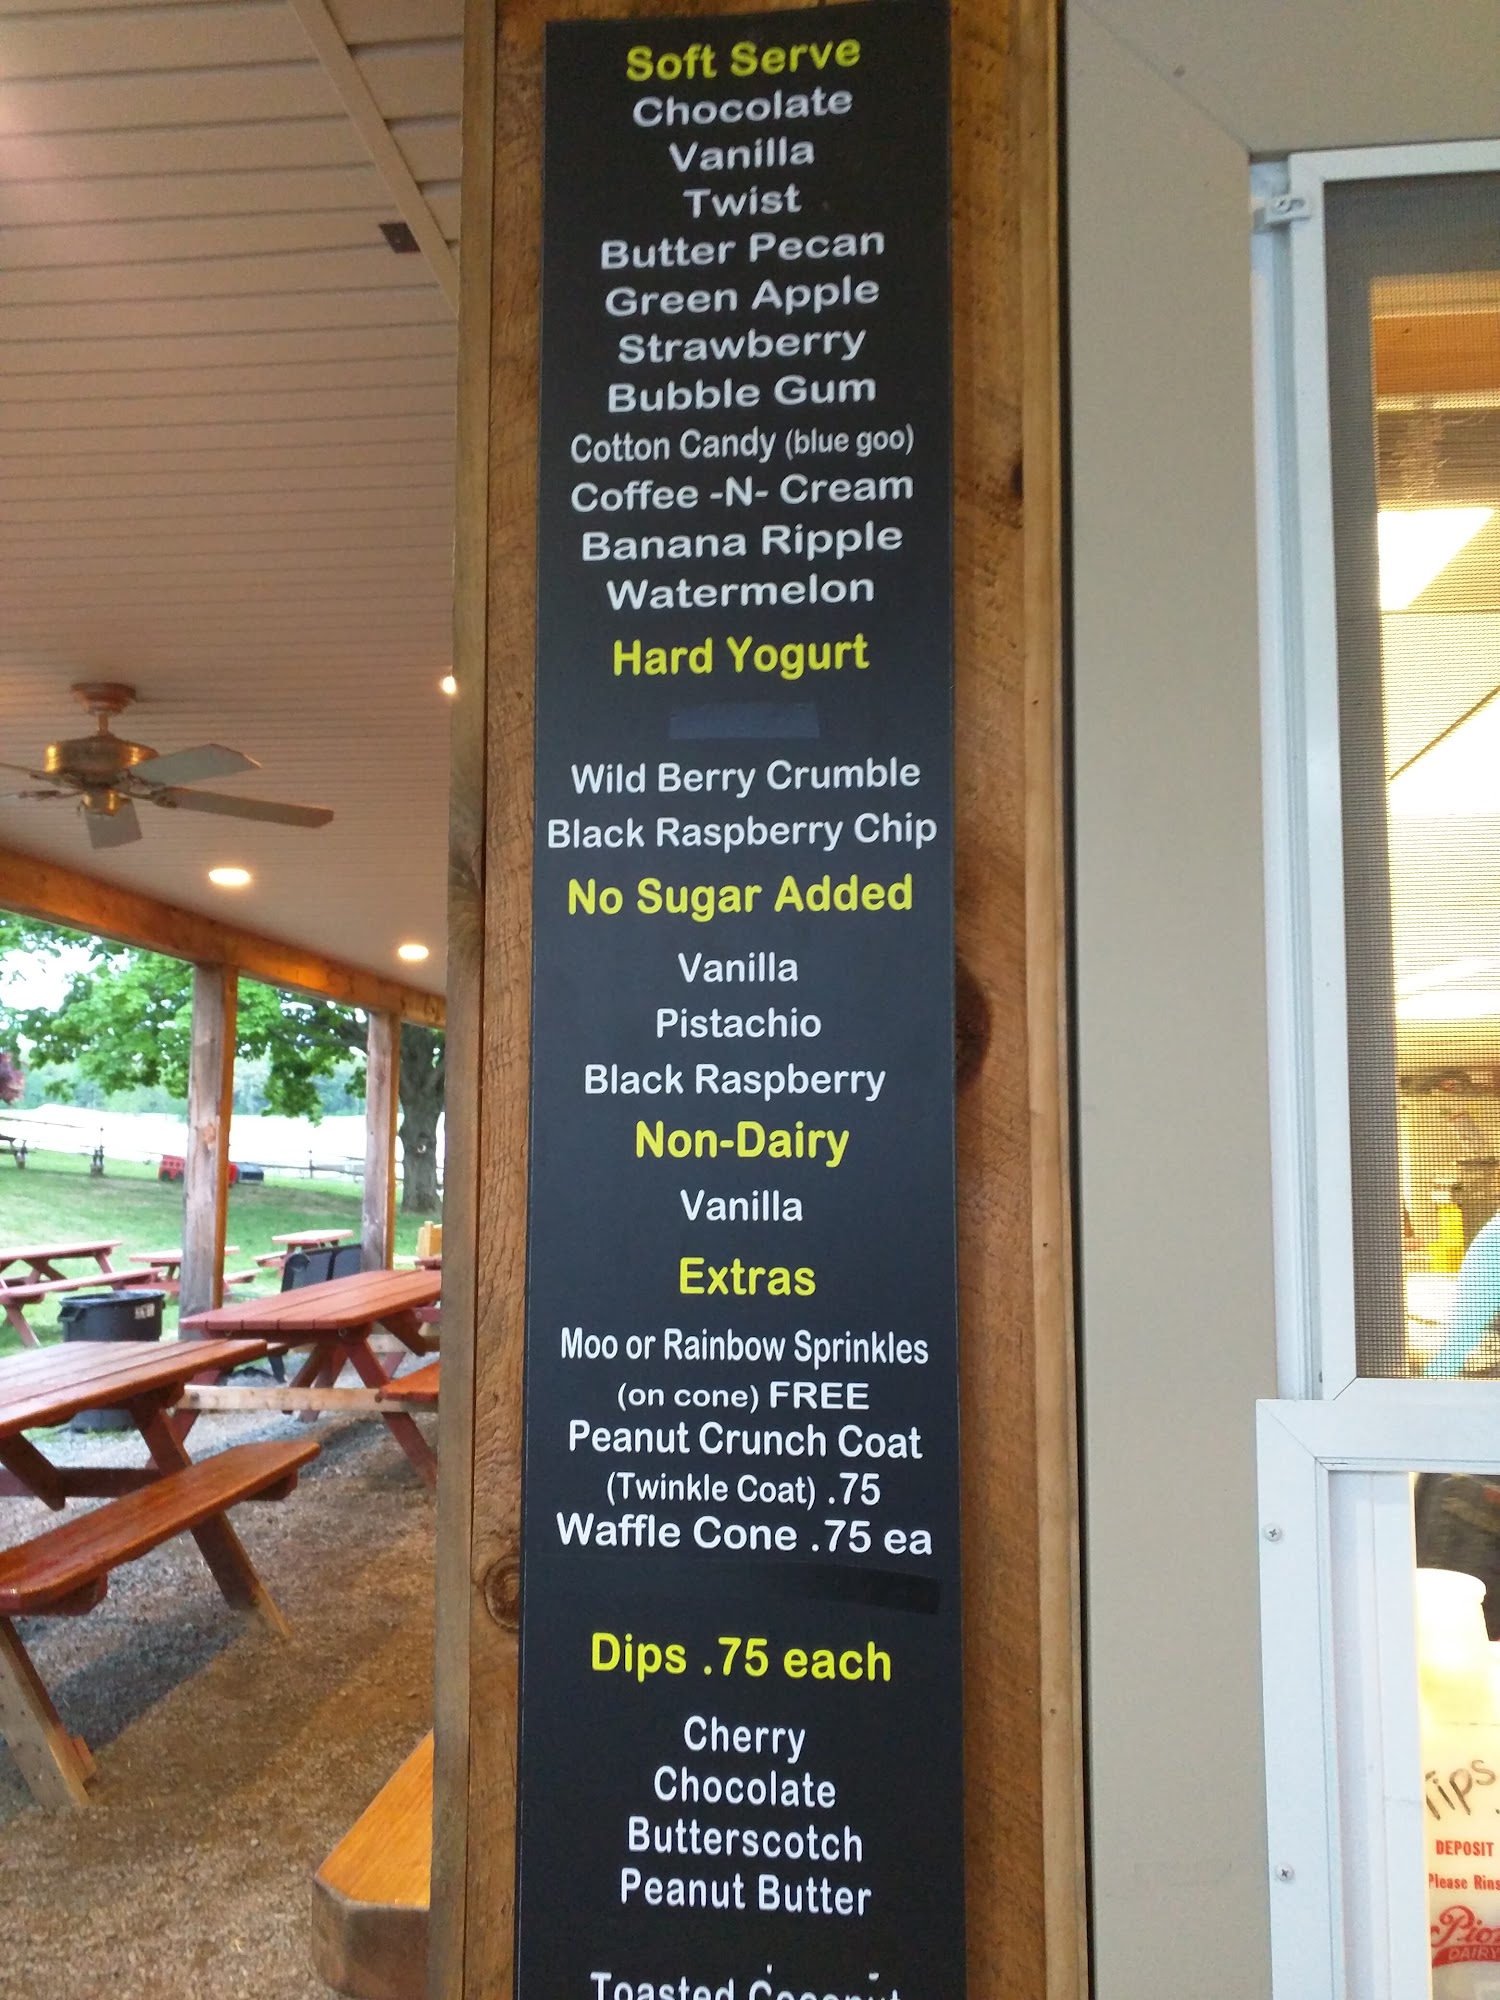 Soft Serve
Chocolate
Vanilla
Twist
Butter Pecan
Green Apple
Strawberry
Bubble Gum
Cotton Candy (blue goo)
Coffee -N- Cream
Banana Ripple
Watermelon
Hard Yogurt
Wild Berry Crumble
Black Raspberry Chip
No Sugar Added
Vanilla
Pistachio
Black Raspberry
Non-Dairy
Vanilla
Extras
Moo or Rainbow Sprinkles
(on cone) FREE
Peanut Crunch Coat
(Twinkle Coat) .75
Waffle Cone .75 ea
Dips .75 each
Cherry
Chocolate
Butterscotch
Peanut Butter
Toasted Coconut
Tips
DEPOSIT
Please
DAIRY